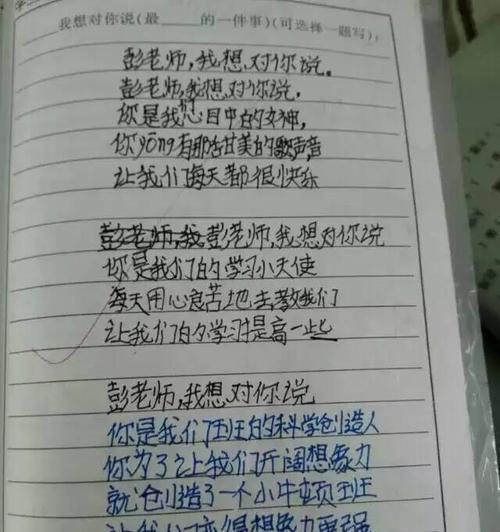 我想对你说(最____的一件事)(可选择一题写):
彭老师,我想对你说。
彭老师,我想对你说,
你是我们心目中的女神,
你yōng有那甜美的歌声音
让我们每天都很快乐
彭老师,我彭老师,我想对你说
你是我们的学习小天使
每天用心良苦地去教我们
让我们的学习提高一些
彭老师,我想对你说
你是我们班的科学创造人
你为了让我们开阔想象力
就创造了一个小牛顿班
让我们变得想象力更强